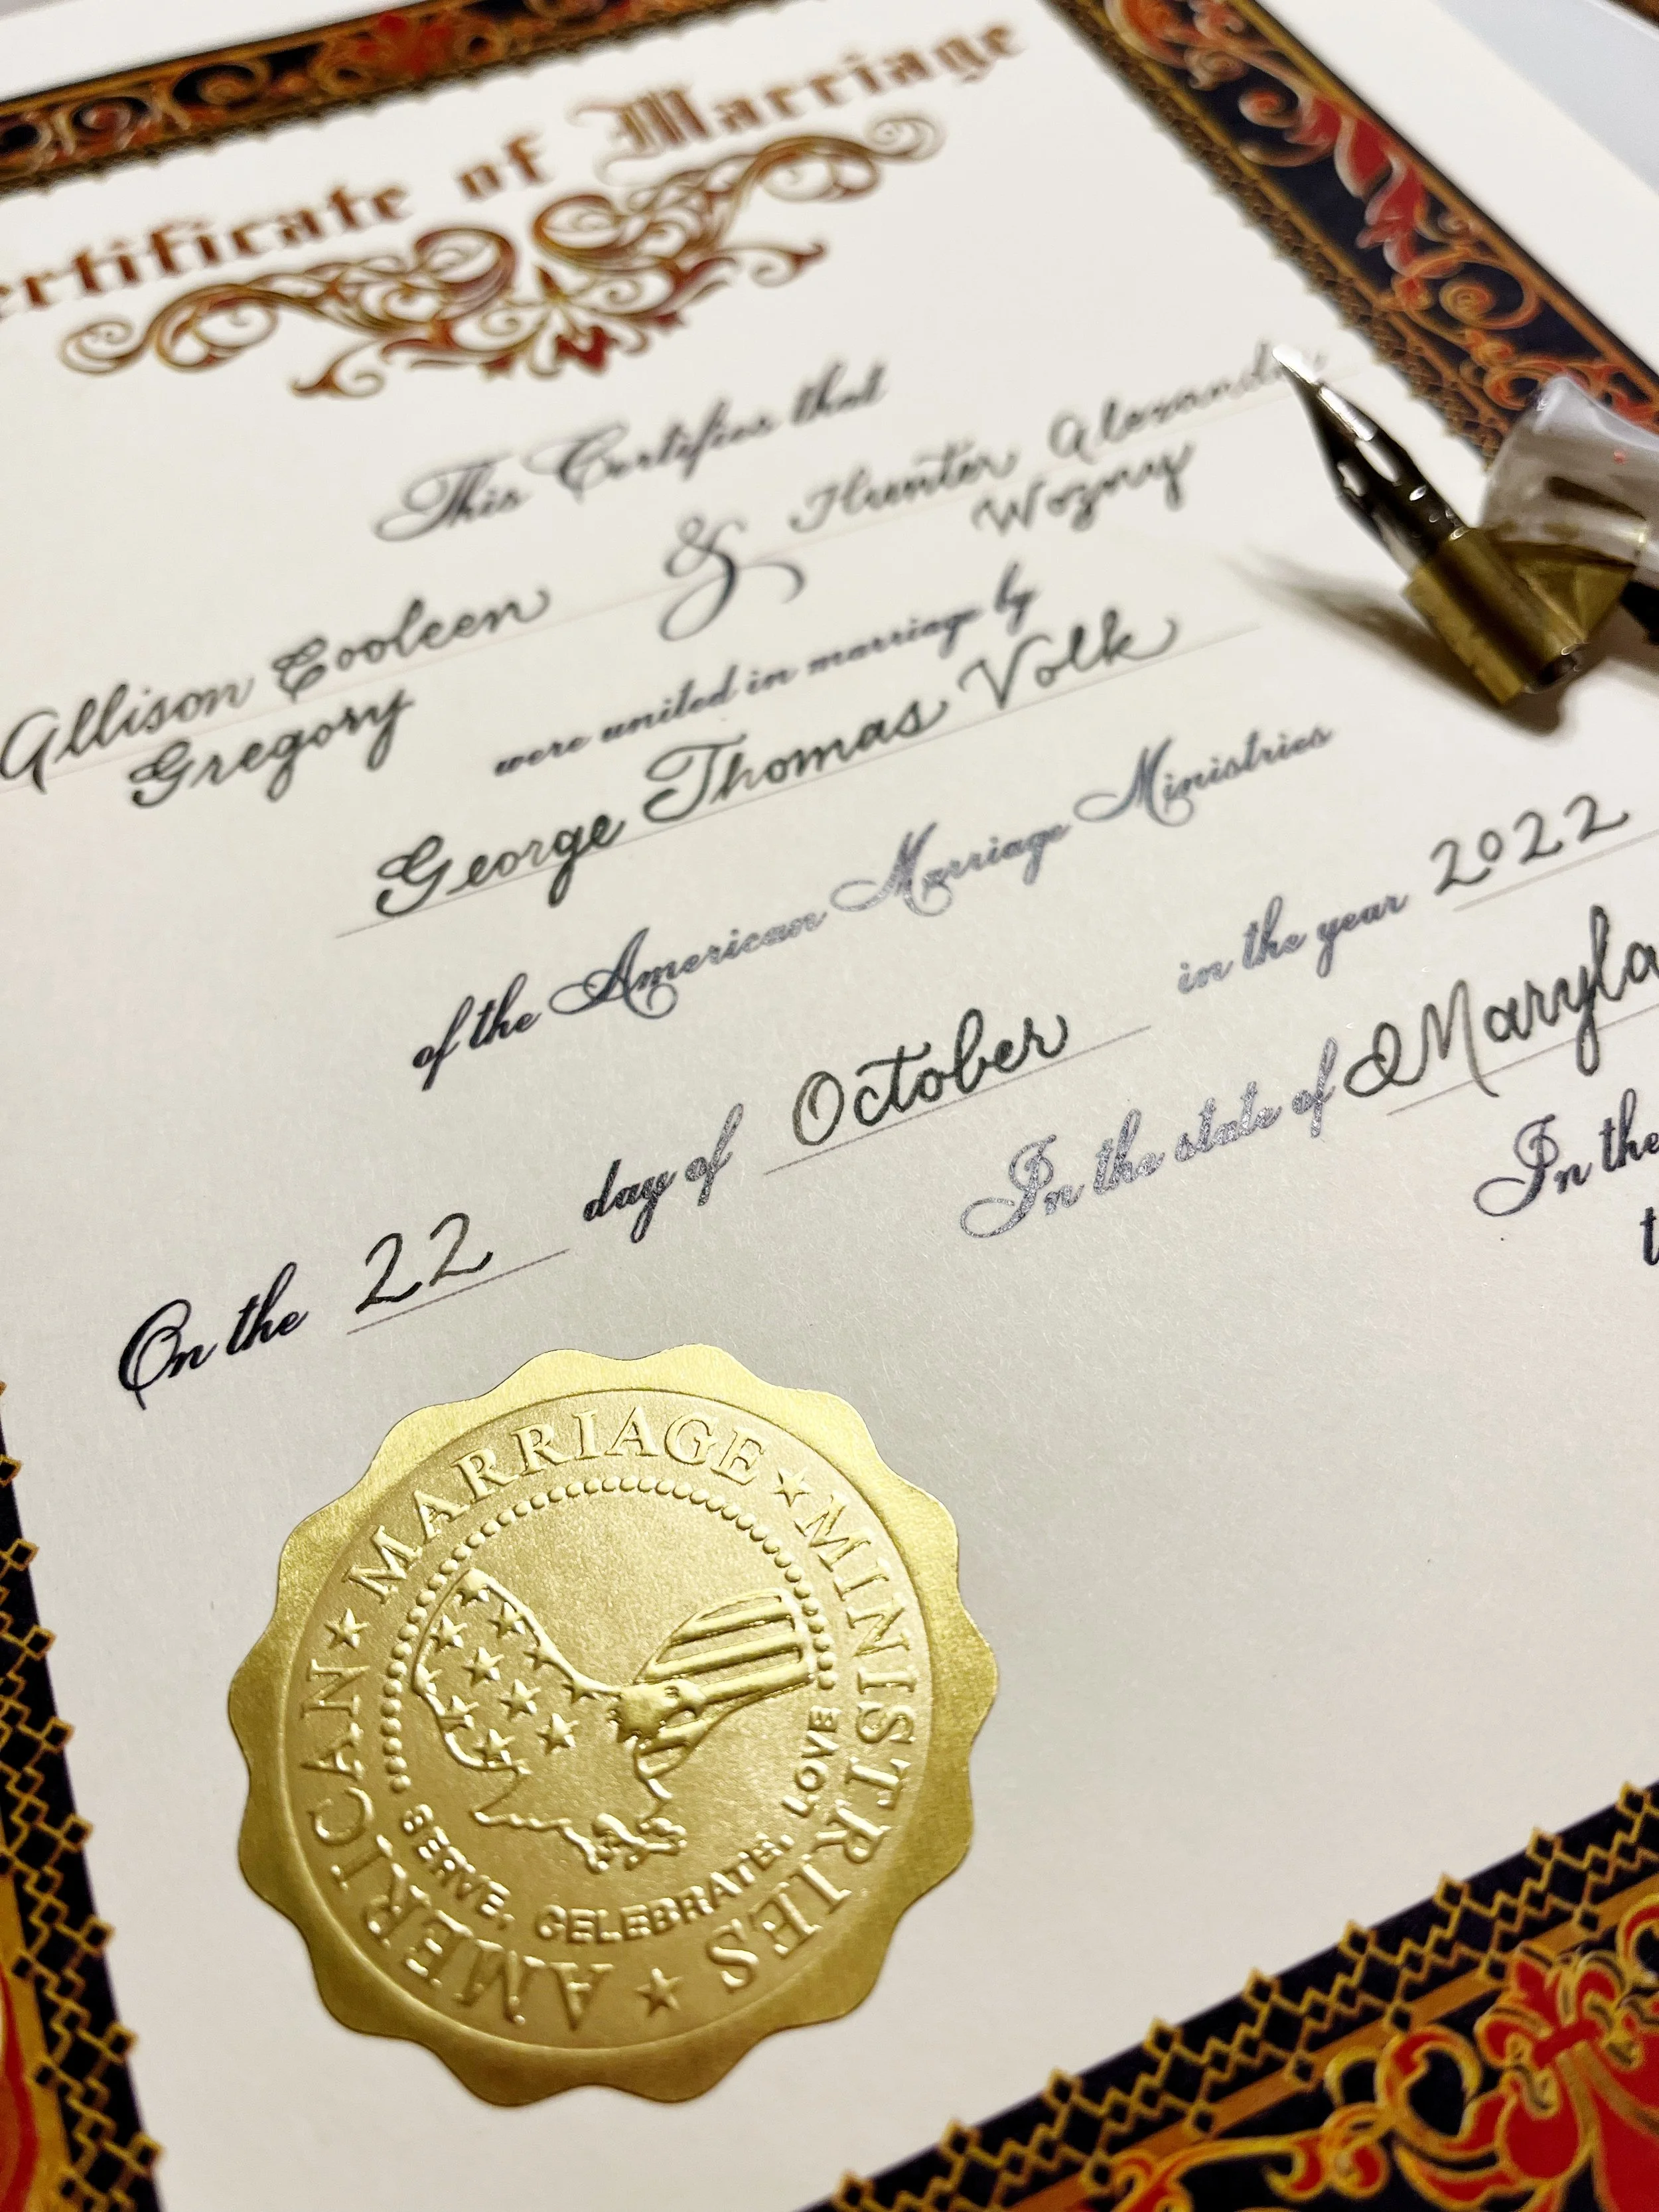 ertificate of Marriage
This Certifies that
Allison Cooleen & Hunter Alexander
Gregory Wozny
were united in marriage by
George Thomas Volk
of the American Marriage Ministries
On the 22 day of October in the year 2022
In the state of Maryla
In the
t
AMERICAN ★ MARRIAGE ★ MINISTRIES ★
SERVE. CELEBRATE. LOVE